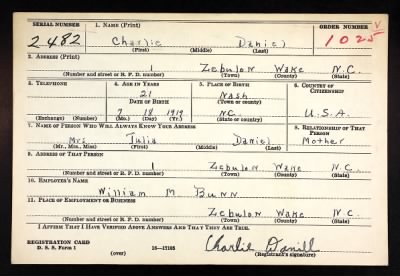 SERIAL NUMBER 1. NAME (Print) ORDER NUMBER
2482 Charlie Daniel 1025
(First) (Middle) (Last)
2. ADDRESS (Print)
1 Zebulon Wake N.C.
(Number and street or R. F. D. number) (Town) (County) (State)
3. TELEPHONE 4. AGE IN YEARS 5. PLACE OF BIRTH 6. COUNTRY OF CITIZENSHIP
21 Nash
DATE OF BIRTH (Town or county)
7 18 1919 N.C. U.S.A.
(Exchange) (Number) (Mo.) (Day) (Yr.) (State or country)
7. NAME OF PERSON WHO WILL ALWAYS KNOW YOUR ADDRESS 8. RELATIONSHIP OF THAT PERSON
Mrs Julia Daniel Mother
(Mr., Mrs., Miss) (First) (Middle) (Last)
9. ADDRESS OF THAT PERSON
1 Zebulon Wake N.C.
(Number and street or R. F. D. number) (Town) (County) (State)
10. EMPLOYER'S NAME
William M Bunn
11. PLACE OF EMPLOYMENT OR BUSINESS
Zebulon Wake N.C.
(Number and street or R. F. D. number) (Town) (County) (State)
I AFFIRM THAT I HAVE VERIFIED ABOVE ANSWERS AND THAT THEY ARE TRUE.
REGISTRATION CARD
D. S. S. Form 1 16—17105 Charlie Daniell
(over) (Registrant's signature)